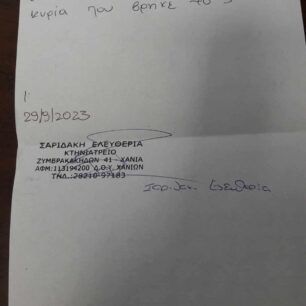 κυρία που βρήκε το
29/9/2023
ΣΑΡΙΔΑΚΗ ΕΛΕΥΘΕΡΙΑ
ΚΤΗΝΙΑΤΡΕΙΟ
ΖΥΜΒΡΑΚΑΚΗΔΩΝ 41 - ΧΑΝΙΑ
ΑΦΜ:113194200 Δ.Ο.Υ. ΧΑΝΙΩΝ
ΤΗΛ.:28210-97183